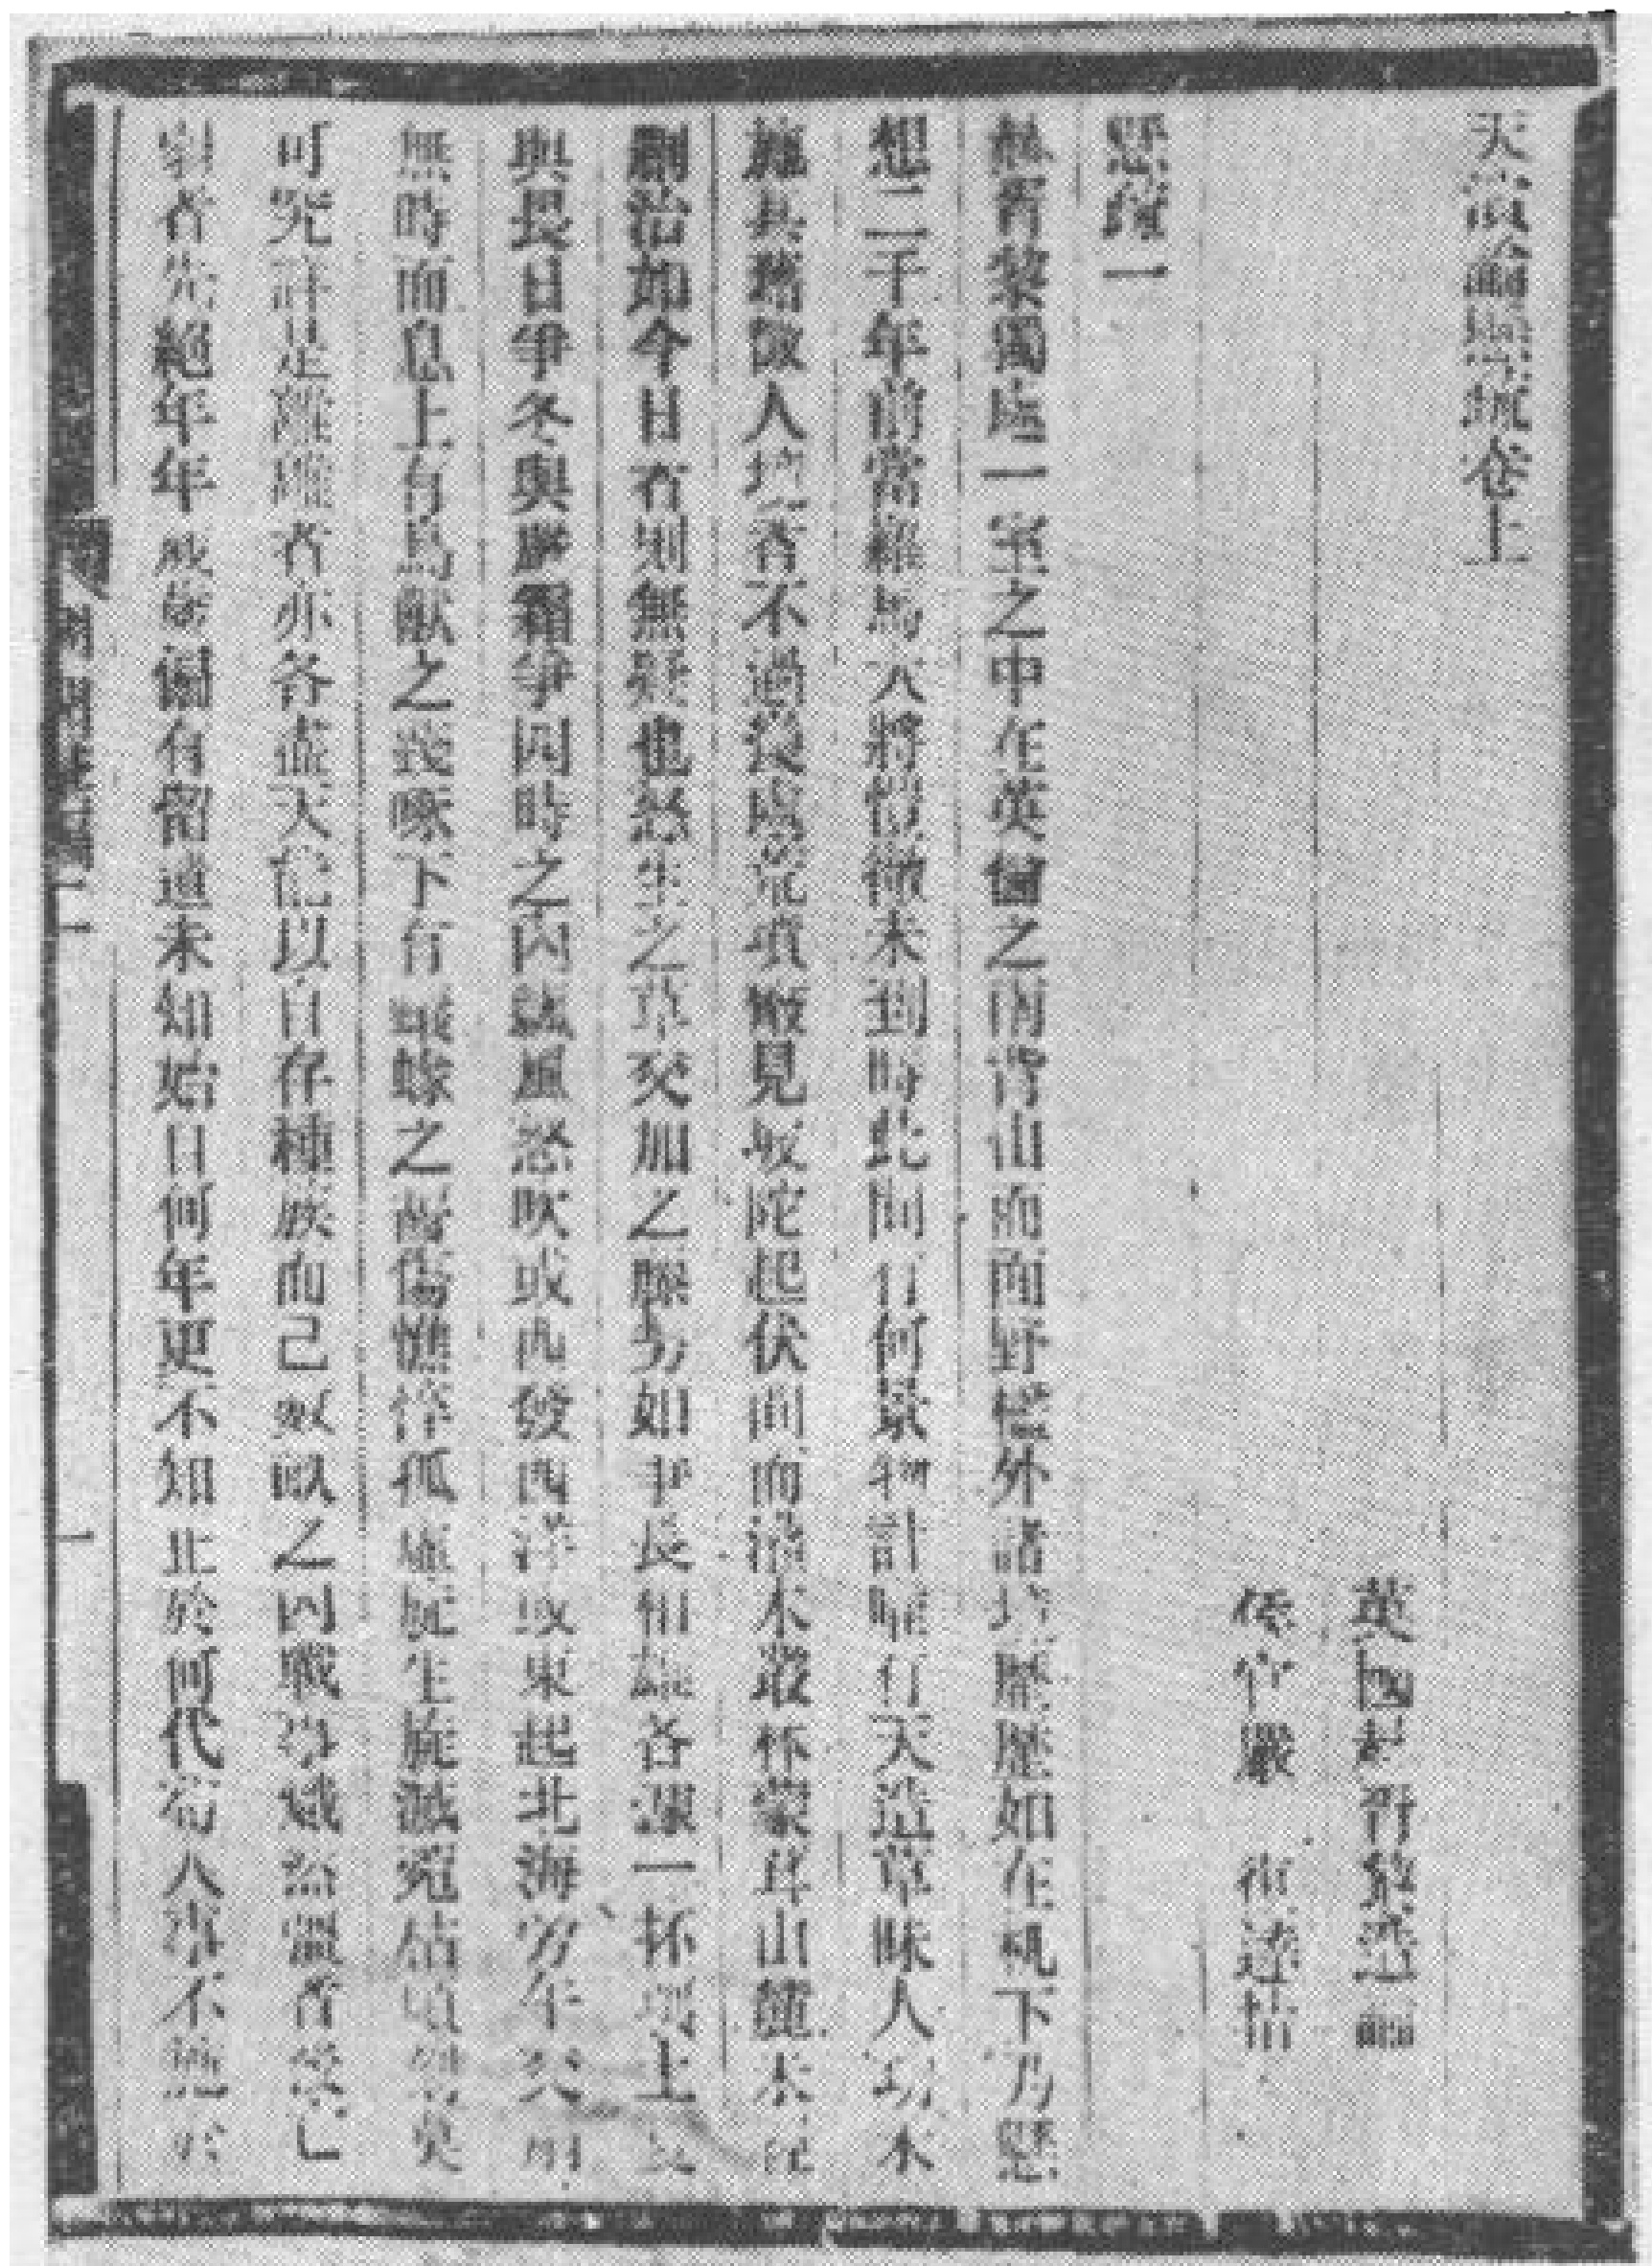 天演論懸疏卷上
英國赫胥黎造論
侯官嚴 復達恉
懸疏一
赫胥黎獨處一室之中在英倫之南背山而面野檻外諸境歷歷如在机下乃懸
想二千年前當羅馬大將愷徹未到時此間有何景物計唯有天造草昧人功未
施其藉徵人境者不過幾處荒墳散見坡陀起伏間而灌木叢林蒙茸山麓未經
刪治如今日者則無疑也怒生之草交加之藤勢如爭長相雄各據一抔壤土夏
與畏日爭冬與嚴霜爭四時之內飄風怒吹或西發西洋或東起北海旁午交扇
無時而息上有鳥獸之踐啄下有蟻蝝之齧傷憔悴孤虛旋生旋滅菀枯頃刻莫
可究詳是離離者亦各盡天能以自存種族而已數畝之內戰事熾然彊者後亡
弱者先絕年年歲歲偏有留遺未知始自何年更不知止於何代苟人事不施於
一